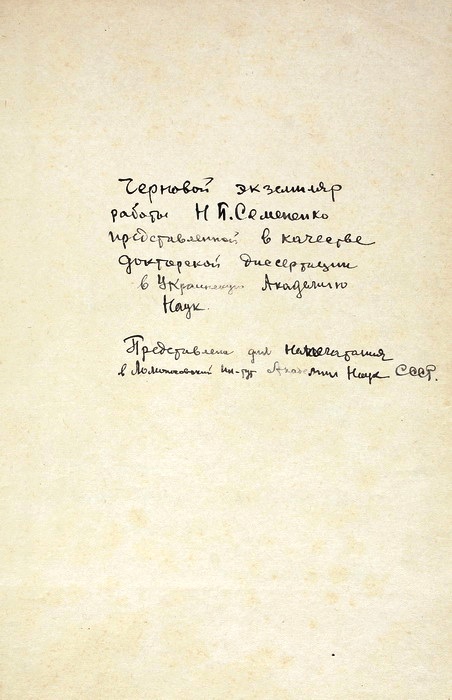 Черновой экземпляр
работы Н.П.Семененко
представленной в качестве
докторской диссертации
в Украинскую Академию
Наук.
Представлена для напечатания
в Ломоносовский ин-тут Академии Наук СССР.